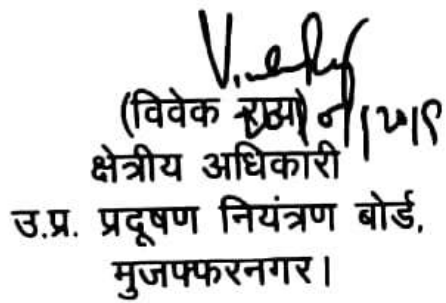 (विवेक राय)
क्षेत्रीय अधिकारी
उ.प्र. प्रदूषण नियंत्रण बोर्ड,
मुजफ्फरनगर।